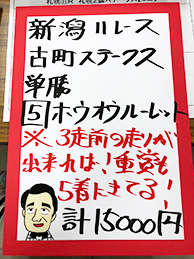 新潟11レース
古町ステークス
単勝
5 ホウオウルーレット
※3走前の走りが
出来れば!重賞も
5着にきてる!
計15000円